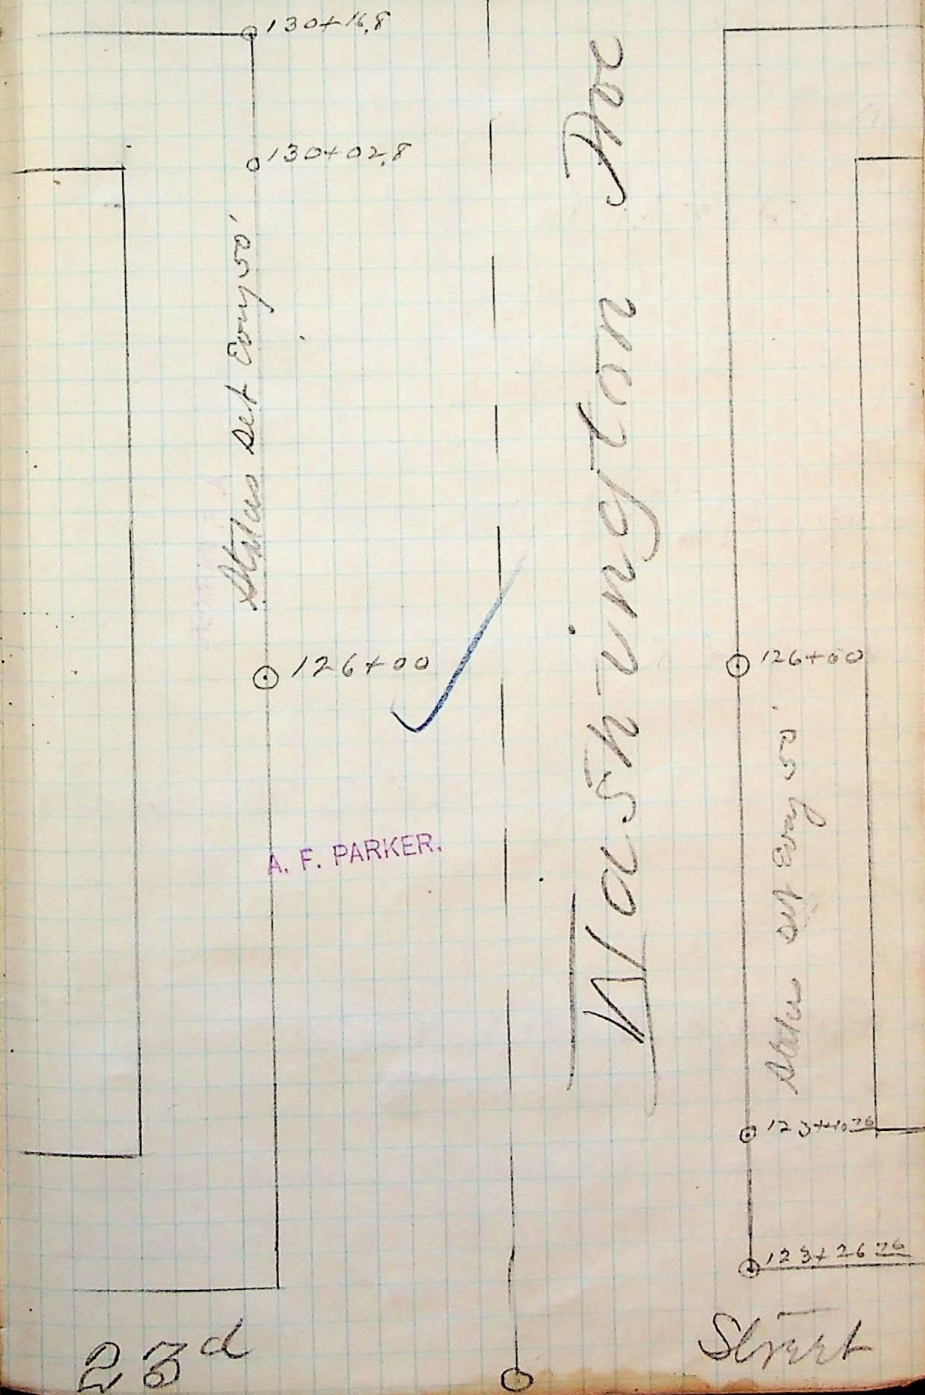 130+16.8
130+02.8
Stakes set Every 50'
126+00
A. F. PARKER.
Washington Ave
126+00
Stakes set Every 50'
123+40.26
123+26 26
23d Street